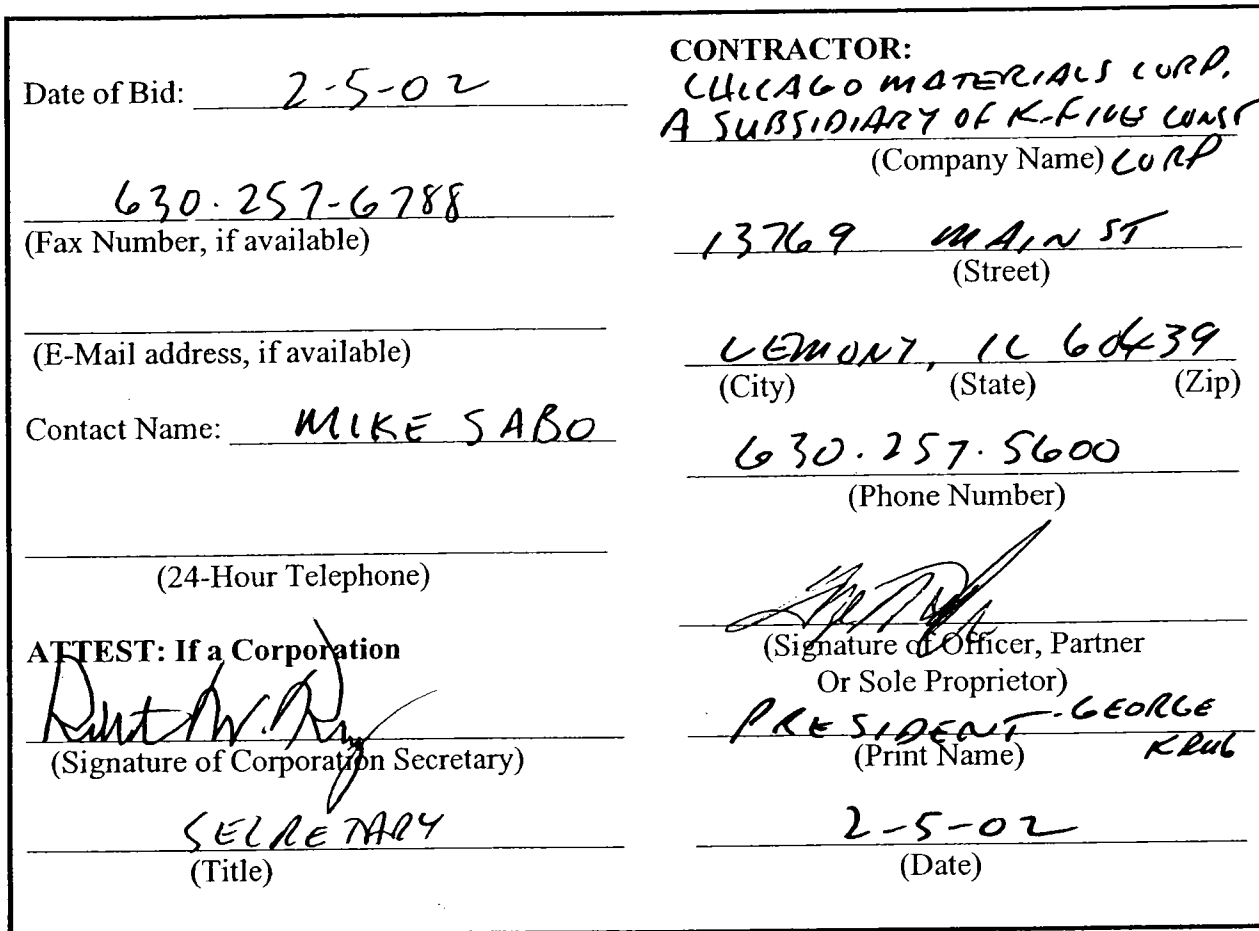 Date of Bid: 2-5-02
630.257-6788
(Fax Number, if available)
(E-Mail address, if available)
Contact Name: MIKE SABO
(24-Hour Telephone)
ATTEST: If a Corporation
(Signature of Corporation Secretary)
SECRETARY
(Title)
CONTRACTOR:
CHICAGO MATERIALS CORP.
A SUBSIDIARY OF K-FIVE CONST
(Company Name) CORP
13769 MAIN ST
(Street)
LEMONT, IL 60439
(City) (State) (Zip)
630.257.5600
(Phone Number)
(Signature of Officer, Partner
Or Sole Proprietor)
PRESIDENT - GEORGE
(Print Name) KRUG
2-5-02
(Date)